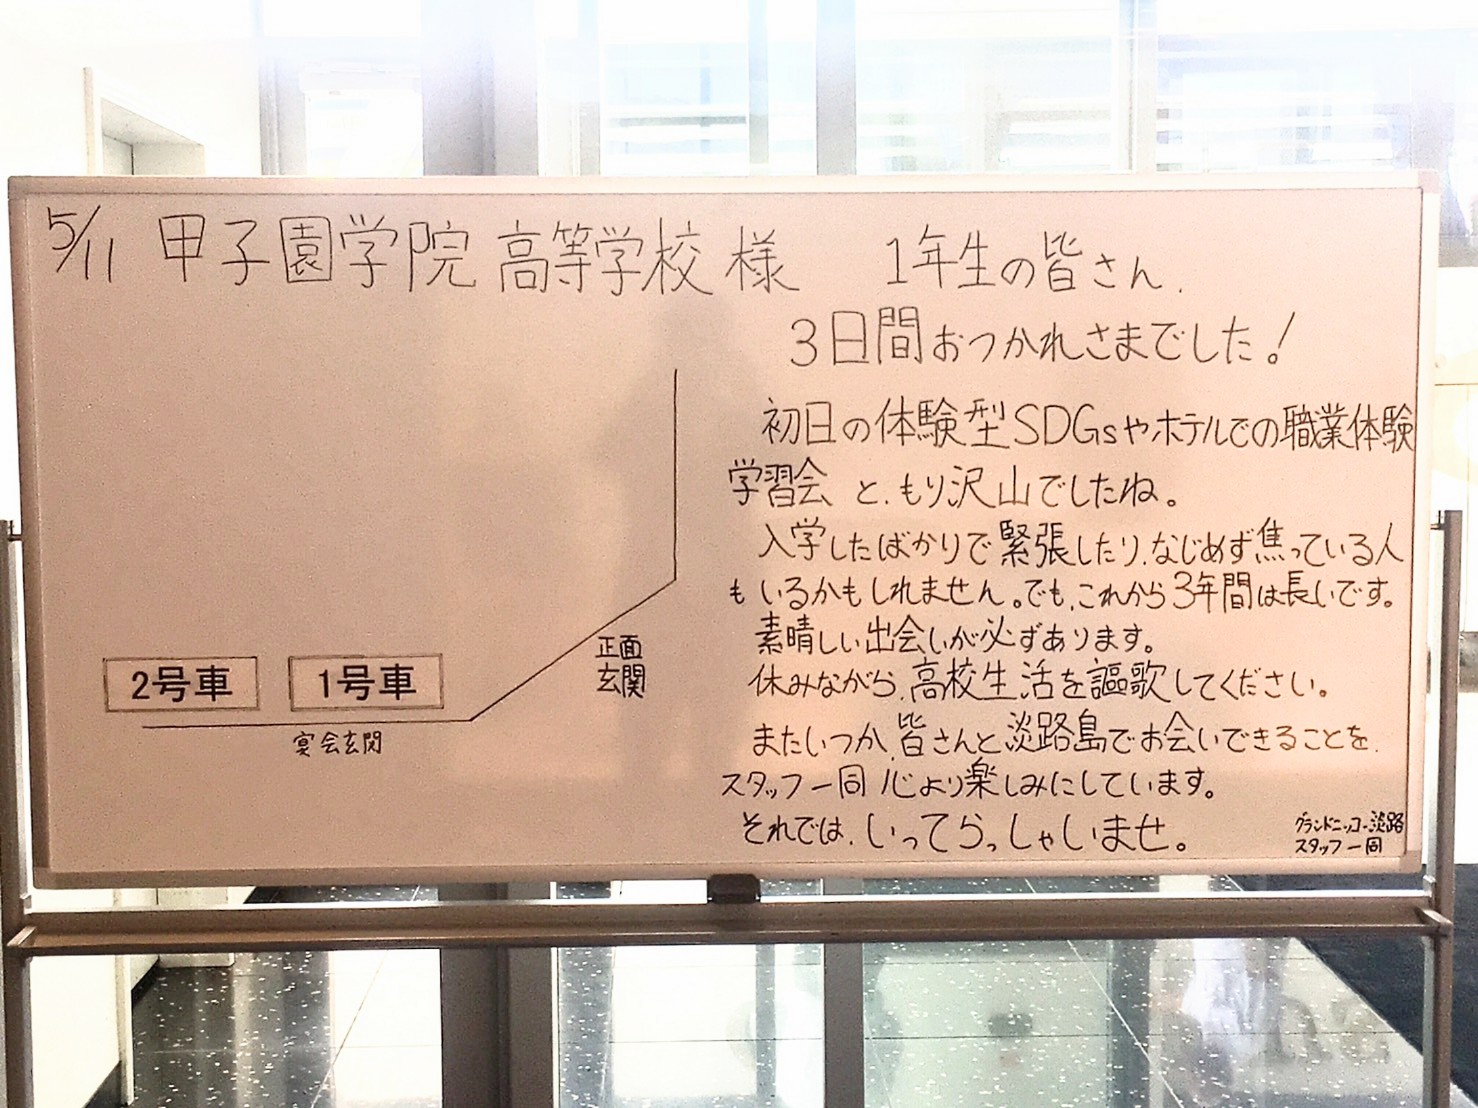 5/11 甲子園学院高等学校 様
1年生の皆さん、
3日間おつかれさまでした!
初日の体験型SDGsやホテルでの職業体験
学習会と、もり沢山でしたね。
入学したばかりで緊張したり、なじめず焦っている人
もいるかもしれません。でも、これから3年間は長いです。
素晴しい出会いが必ずあります。
休みながら、高校生活を謳歌してください。
またいつか、皆さんと淡路島でお会いできることを、
スタッフ一同 心より楽しみにしています。
それでは、いってらっしゃいませ。
グランドニッコー淡路
スタッフ一同
2号車 1号車
宴会玄関
正面
玄関